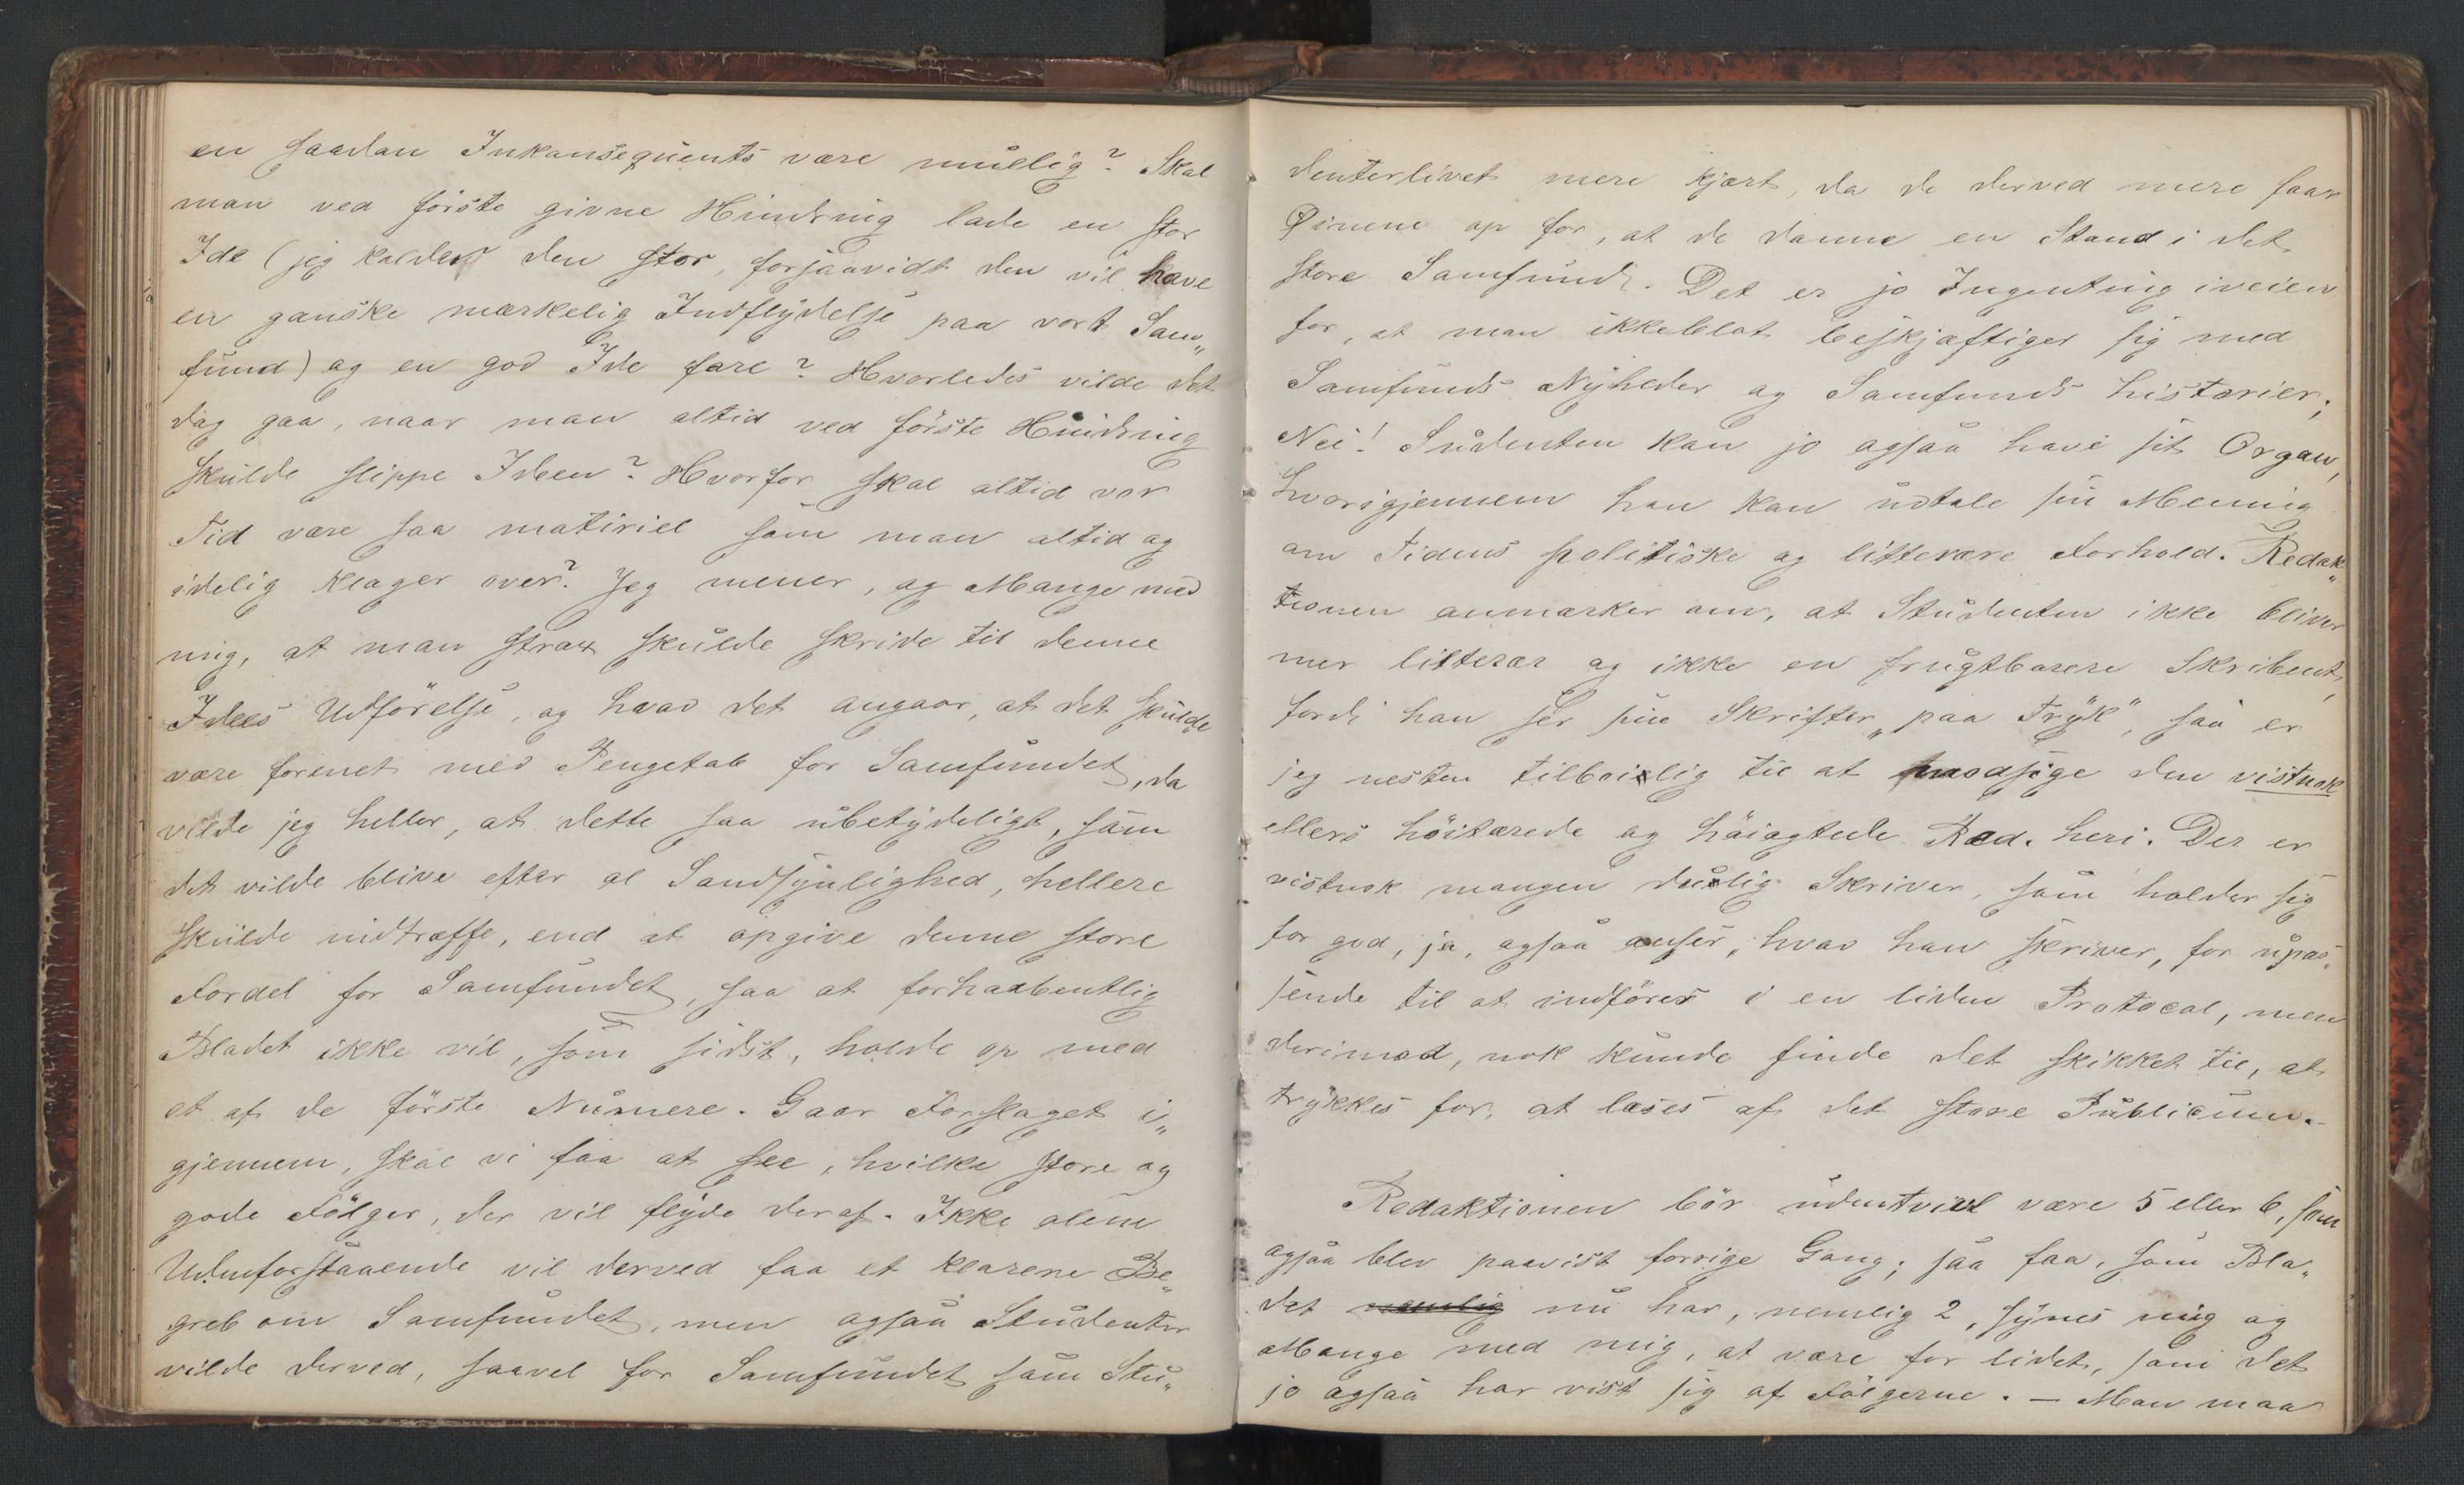 en saadan Inkonsequents være muelig? Skal
man ved første givne Hindring lade en stor
Ide (jeg kalder den stor, forsaavidt den vil have
en ganske mærkelig Indflydelse paa vort Sam„
fund) og en god Ide fare? Hvorledes vilde det
dog gaa, naar man altid ved første Hindring
skulde slippe Ideen? Hvorfor skal altid vor
Tid være saa matiriel som man altid og
idelig klager over? Jeg mener, og Mange med
mig, at man strax skulde skride til denne
Idees Udførelse, og hvad det angaar, at det skulde
være forenet med Pengetab for Samfundet, da
vilde jeg heller, at dette saa ubetydeligt, som
det vilde blive efter al Sandsynlighed, hellere
skulde indtræffe, end at opgive denne store
Fordel for Samfundet, saa at forhaabentlig
Bladet ikke vil, som sidst, holde op med
et af de første Numere. Gaar Forslaget i„
gjennem, skal vi faa at see, hvilke store og
gode Følger, der vil flyde deraf. Ikke alene
Udenforstaaende vil derved faa et klarere Be„
greb om Samfundet, men ogsaa Studenter
vilde derved, saavel for Samfundet som Stu„
denterlivet mere kjært, da de derved mere faar
Øinene op for, at de danne en Stand i det
store Samfund. Det er jo Ingenting iveien
for, at man ikkeblot beskjæftiger sig med
Samfunds Nyheder og Samfunds historier;
Nei! Sudenten kan jo ogsaa have sit Organ,
hvorigjennem han kan udtale sin Mening
om Tidens politiske og littерære Forhold. Redak„
tionen anmærker om, at Studenten ikke bliver
mer litterær og ikke en frugtbarere Skribent,
fordi han ser sine Skrifter „paa Tryk“, saa er
jeg nesten tilbøielig til at modsige den vistnok
ellers høitærede og høiagtede Red. heri. Der er
vistnok mangen duelig Skriver, som holder sig
for god, ja, ogsaa anser, hvad han skriver, for upas„
sende til at indføres i en liden Protocol, men
derimod, nok kunde finde det skikket til, at
trykkes for, at læses af det store Publicum.
Redaktionen bør udentvivl være 5 eller 6, som
ogsaa blev paavist forrige Gang; saa faa, som Bla„
det nemlig nu har, nemlig 2, synes mig og
Mange med mig, at være for lidet, som det
jo ogsaa har vist sig af Følgerne. — Man maa